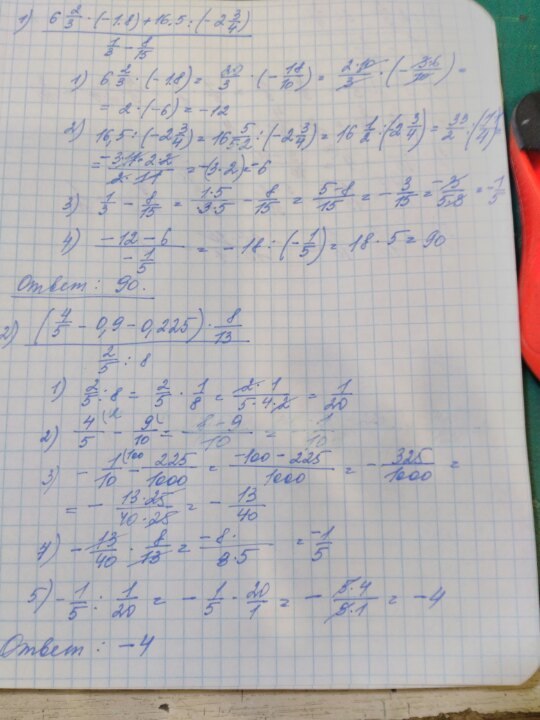 1) (6 2/3 · (-1.8) + 16.5 : (-2 3/4)) / (1/3 - 8/15)
1) 6 2/3 · (-1.8) = 20/3 · (-18/10) = (2·10)/3 · (-(3·6)/10) =
= 2 · (-6) = -12
2) 16,5 : (-2 3/4) = 16 5/(5·2) : (-2 3/4) = 16 1/2 : (-2 3/4) = 33/2 : (-11/4) =
= (-3·11·2·2)/(2·11) = -(3·2) = -6
3) 1/3 - 8/15 = (1·5)/(3·5) - 8/15 = (5-8)/15 = -3/15 = -3/(5·3) = -1/5
4) (-12-6)/(-1/5) = -18 : (-1/5) = 18 · 5 = 90
Ответ : 90.
2) ((4/5 - 0,9 - 0,225) · 8/13) / (2/5 : 8)
1) 2/5 : 8 = 2/5 · 1/8 = (2·1)/(5·4·2) = 1/20
2) 4/5 (2 - 9/10 = (8-9)/10 = -1/10
3) -1/10 (100 - 225/1000 = (-100-225)/1000 = -325/1000 =
= -(13·25)/(40·25) = -13/40
4) -13/40 · 8/13 = -8/(8·5) = -1/5
5) -1/5 : 1/20 = -1/5 · 20/1 = -(5·4)/(5·1) = -4
Ответ : -4